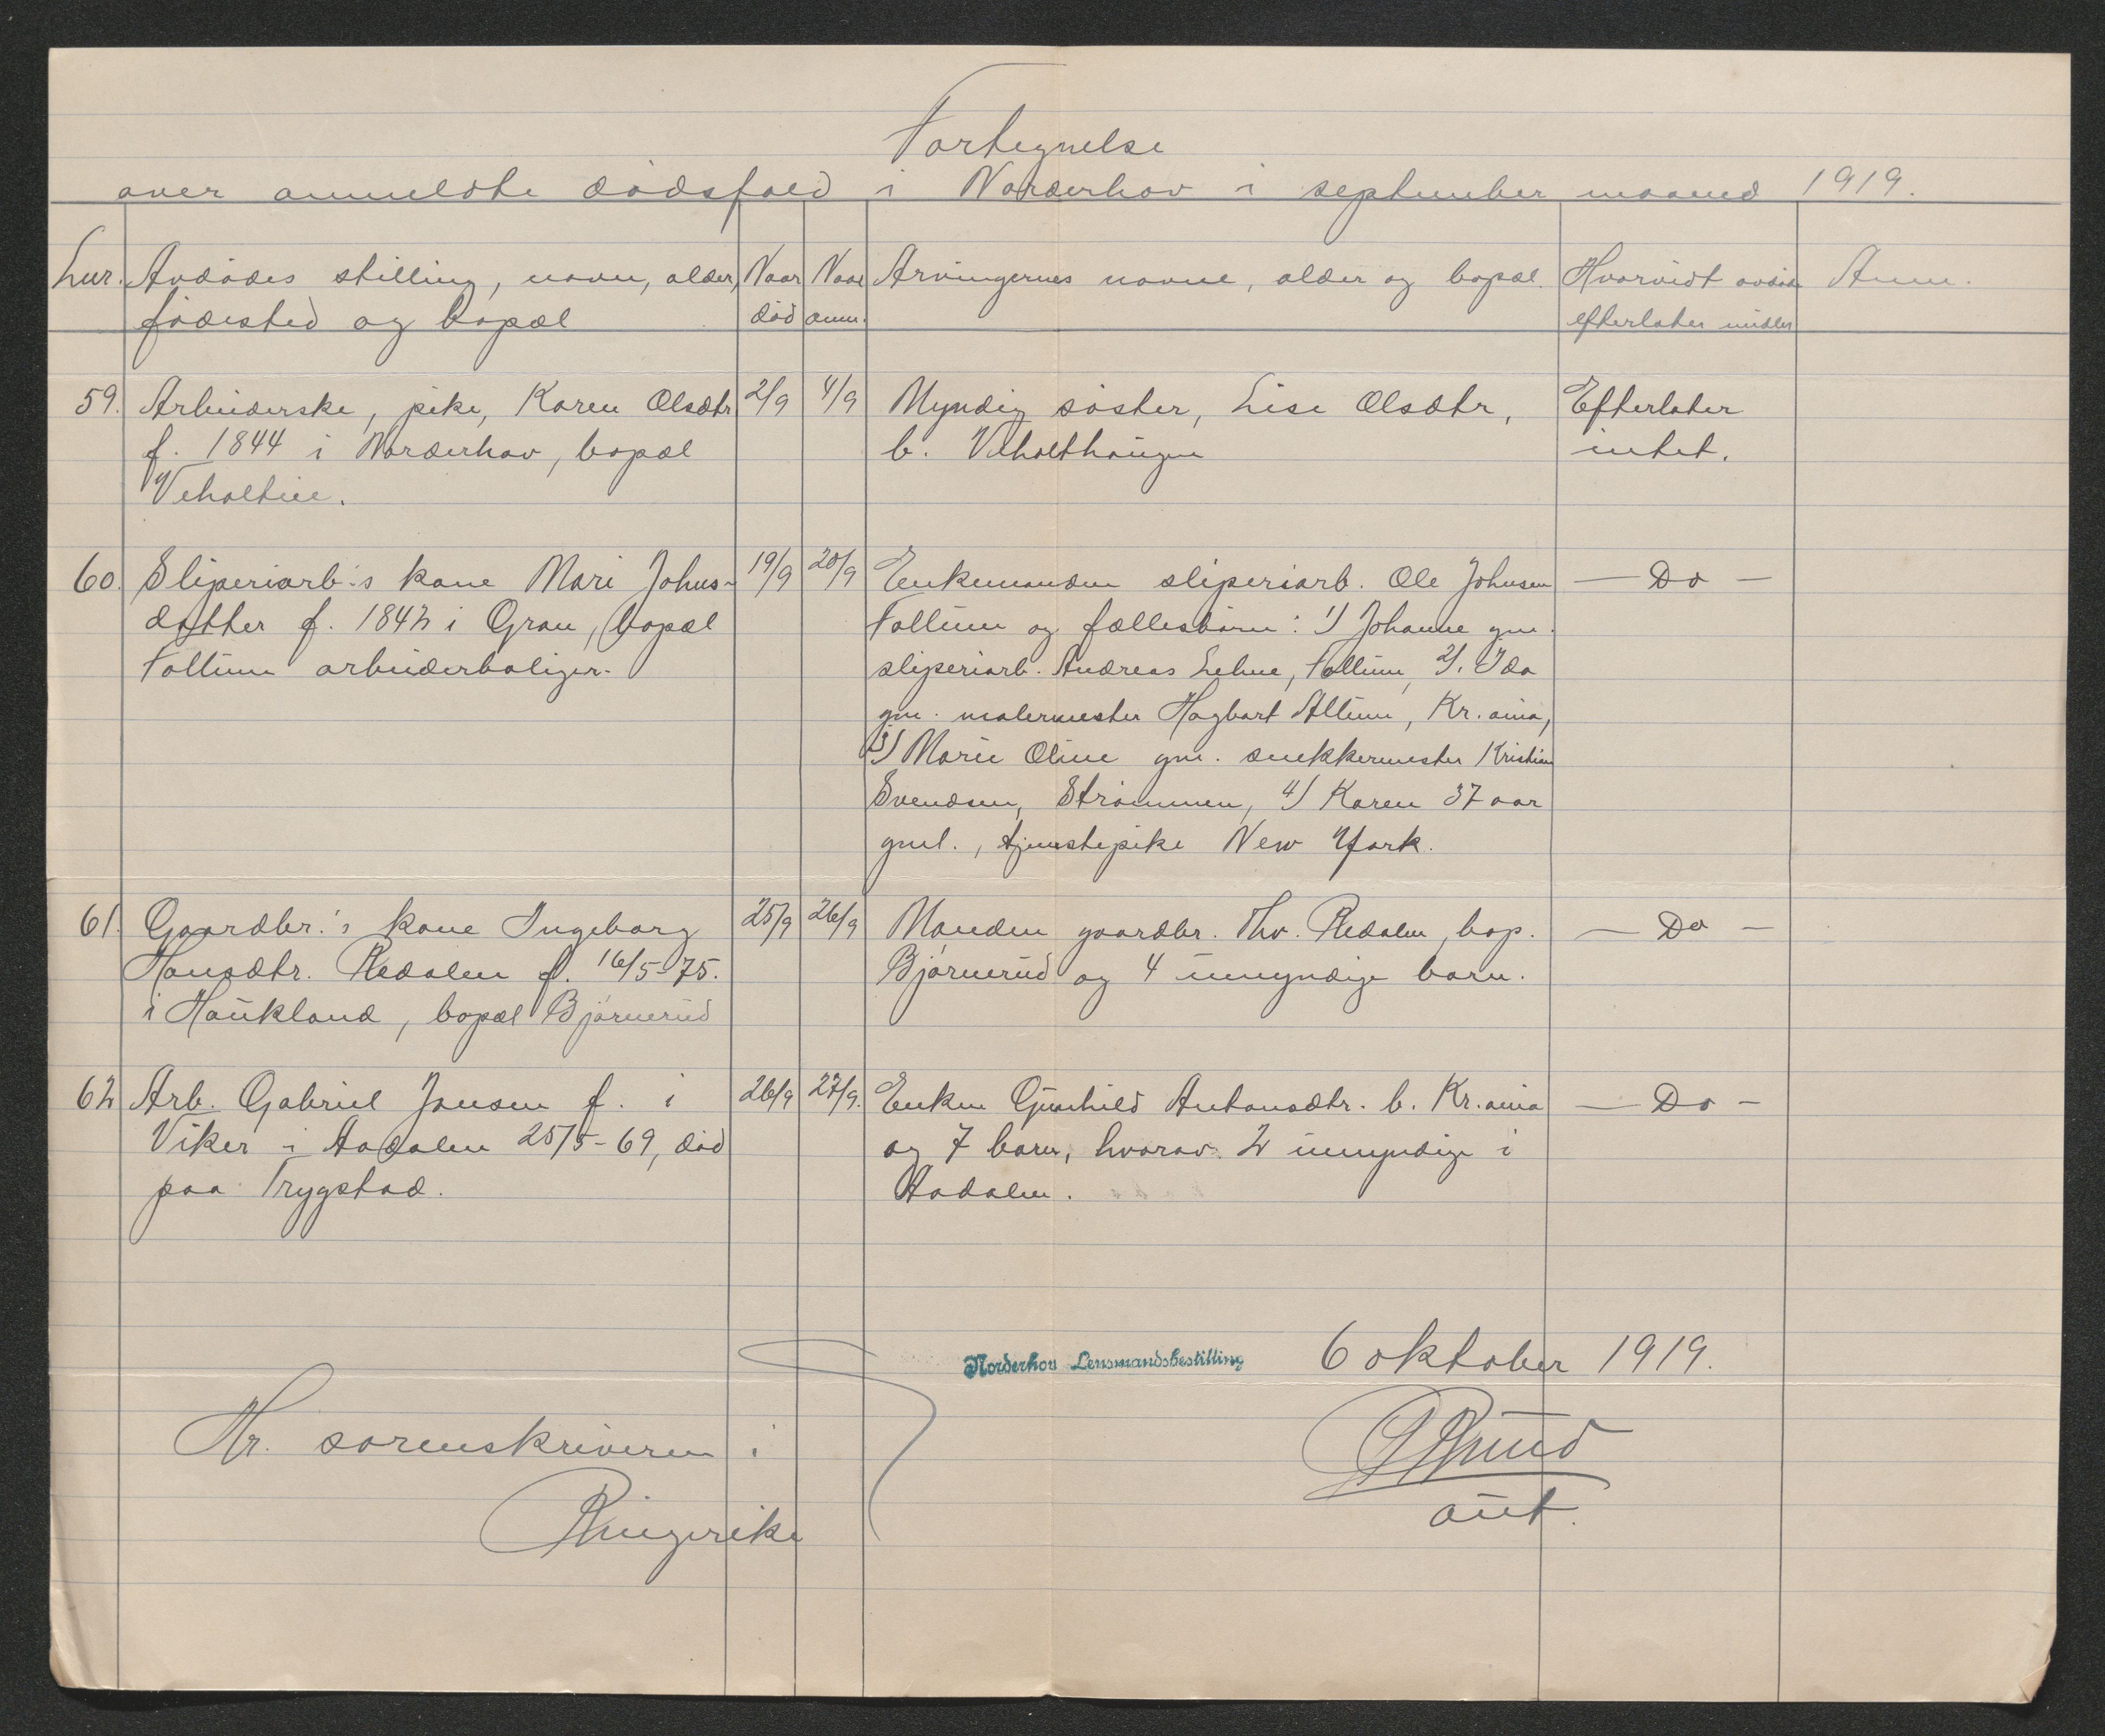 Fortegnelse
over anmeldte dødsfald i Norderhov i september maaned 1919.
Lnr. Avdødes stilling, navn, alder, Naar Naar Arvingernes navne, alder og bopæl. Hvorvidt avdøde Anm.
fødested og bopæl død anm. efterlater midler
59. Arbeiderske, pike, Karen Olsdtr 2/9 4/9 Myndig søster, Lise Olsdtr, Efterlater
f. 1844 i Norderhov, bopæl b. Veholthaugen intet.
Veholteie.
60. Sliperiarb.'s kone Mari Johns- 19/9 20/9 Enkemanden sliperiarb. Ole Johnsen — Do —
datter f. 1842 i Gran, bopæl Follum og fællesbørn: 1) Johanne gm.
Follum arbeiderboliger. sliperiarb. Andreas Lehne, Follum, 2). Ida
gm. malermester Hagbart Altum, Kr.ania,
3) Marie Oline gm. snekkermester Kristian
Svendsen, Strømmen, 4) Karen 37 aar
gml., tjenestepike New York.
61. Gaardbr.'s kone Ingeborg 25/9 26/9 Manden gaardbr. Thv. Redalen, bop. — Do —
Hansdtr. Redalen f. 16/5-75. Bjørnerud og 4 umyndige barn.
i Haukland, bopæl Bjørnerud
62 Arb. Gabriel Jansen f. i 26/9 27/9. Enken Gunhild Antonsdtr. b. Kr.ania — Do —
Viker i Aadalen 25/5-69, død og 7 barn, hvorav 2 umyndige i
paa Trygstad. Aadalen.
Norderhov Lensmandsbestilling 6 oktober 1919.
Hr. sorenskriveren i
Ringerike
aut.